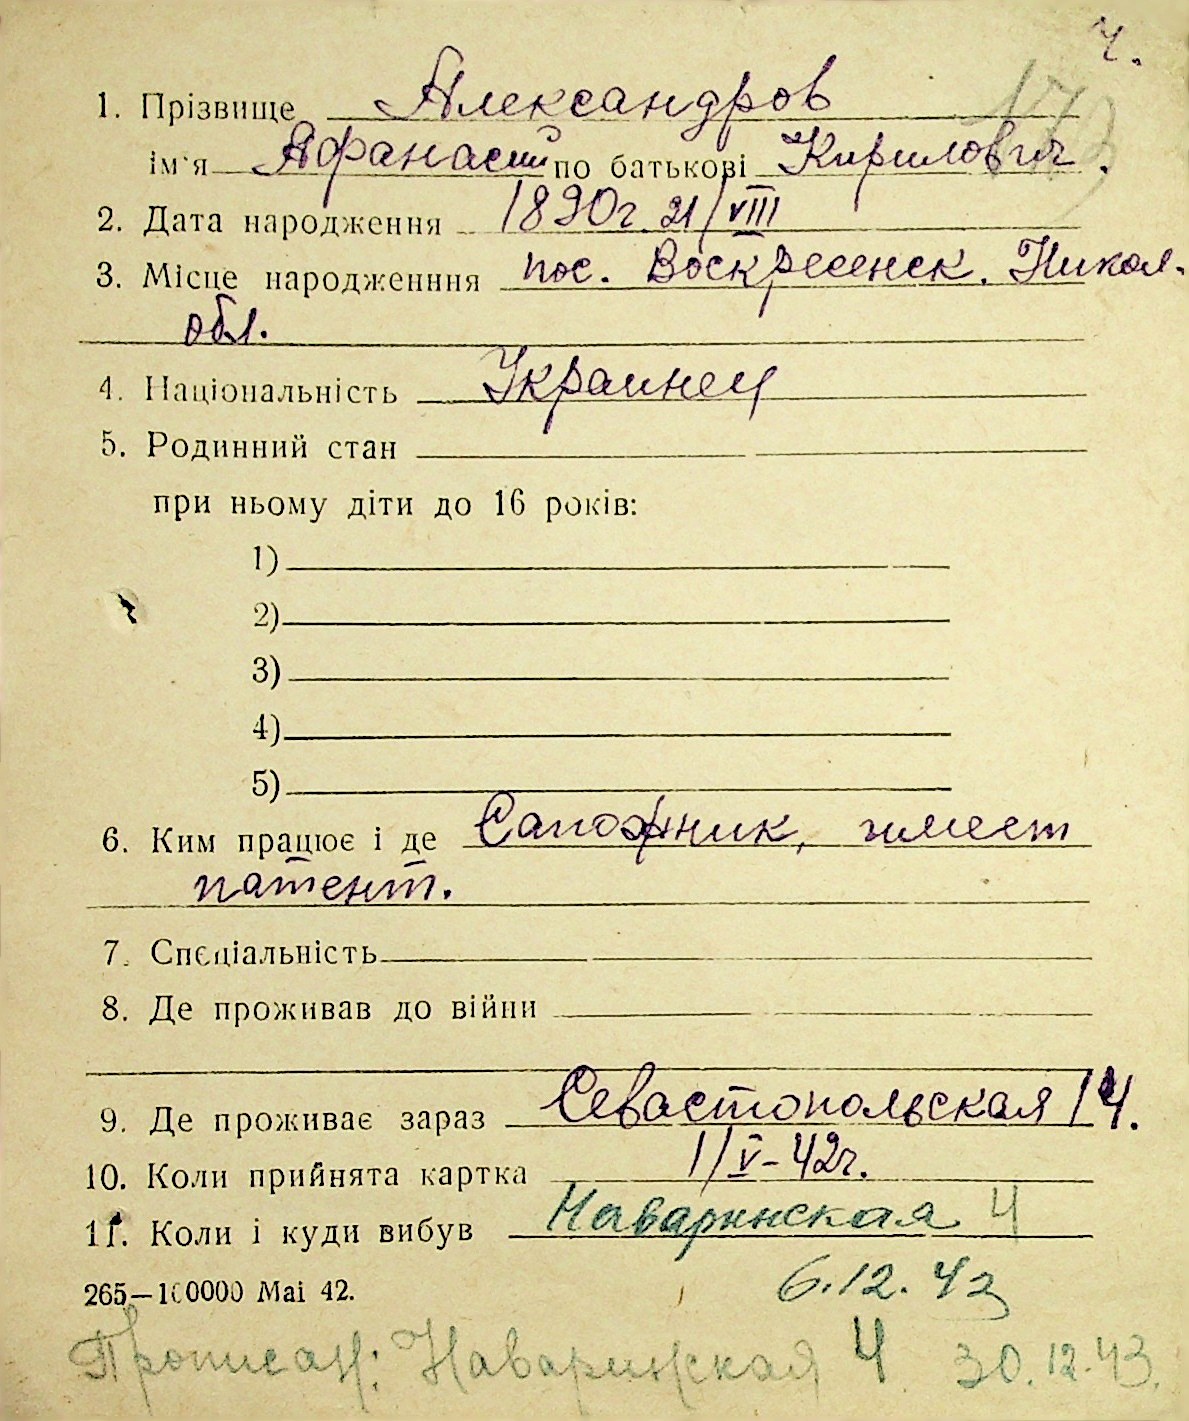 ч.
173
1. Прізвище Александров
ім'я Афанасий по батькові Кирилович.
2. Дата народження 1890г. 21/VIII
3. Місце народженння пос. Воскресенск. Никол.
обл.
4. Національність Украинец
5. Родинний стан
при ньому діти до 16 років:
1)
2)
3)
4)
5)
6. Ким працює і де Сапожник, имеет
патент.
7. Спеціальність
8. Де проживав до війни
9. Де проживає зараз Севастопольская 14.
10. Коли прийнята картка 1/V-42г.
11. Коли і куди вибув Наваринская 4
265—100000 Mai 42. 6.12.43
Прописан: Наваринская 4 30.12.43.